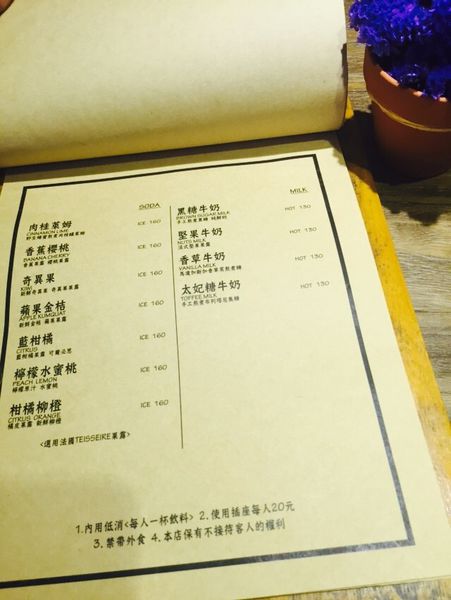 SODA
肉桂萊姆 ICE 160
CINNAMON LIME
香蕉櫻桃 ICE 160
BANANA CHERRY
香蕉果露 櫻桃果露
奇異果 ICE 160
KIWI
新鮮奇異果 奇異果果露
蘋果金桔 ICE 160
APPLE KUMQUAT
新鮮金桔 蘋果果露
藍柑橘 ICE 160
CITRUS
藍柑橘果露 可爾必思
檸檬水蜜桃 ICE 160
PEACH LEMON
檸檬原汁 水蜜桃
柑橘柳橙 ICE 160
CITRUS ORANGE
橘皮果露 新鮮柳橙
<選用法國TEISSEIRE果露>
MILK
黑糖牛奶 HOT 130
BROWN SUGAR MILK
手工熬煮黑糖 純鮮奶
堅果牛奶 HOT 130
NUTS MILK
法式堅果果露
香草牛奶 HOT 130
VANILLA MILK
馬達加斯加香草莢熬煮糖
太妃糖牛奶 HOT 130
TOFFEE MILK
手工熬煮布列塔尼焦糖
1.內用低消<每人一杯飲料> 2.使用插座每人20元
3.禁帶外食 4.本店保有不接待客人的權利